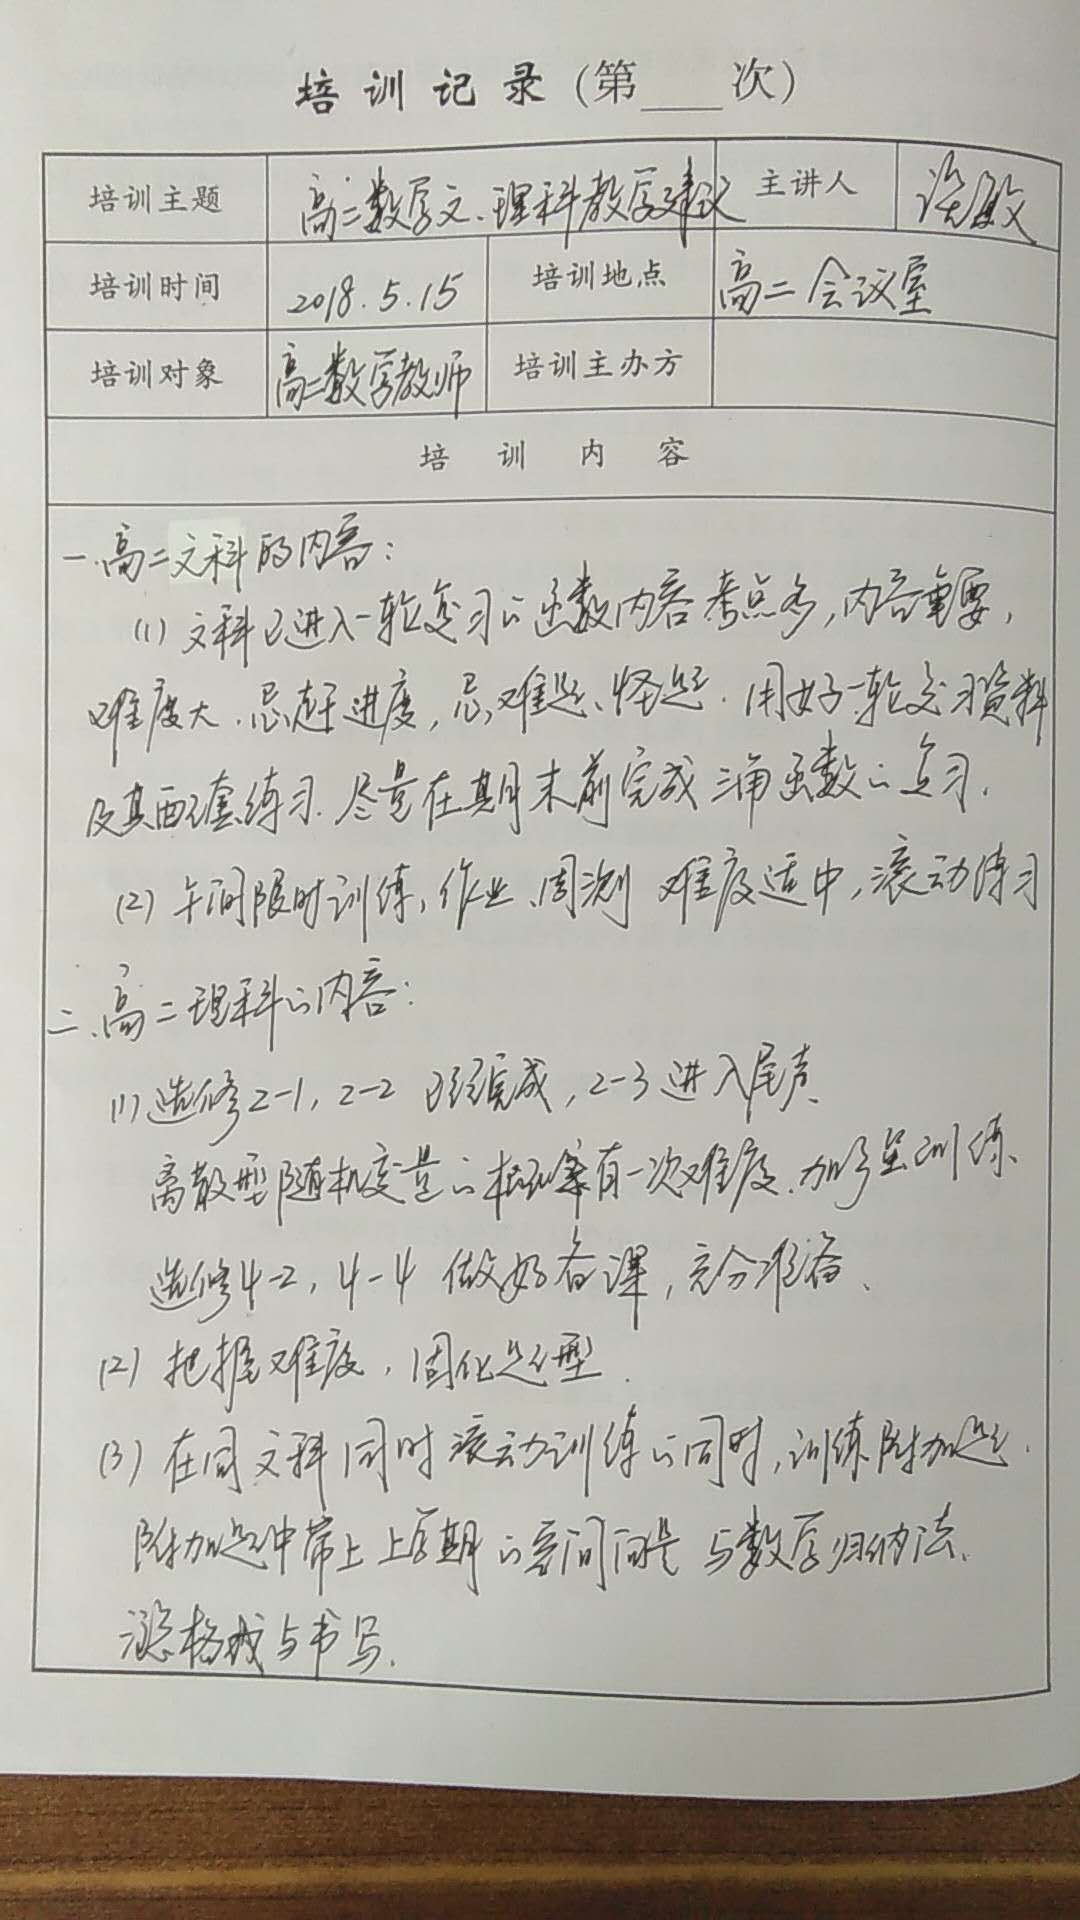 培训记录(第___次)
培训主题 高二数学文、理科教学建议 主讲人 敏
培训时间 2018.5.15 培训地点 高二会议室
培训对象 高二数学教师 培训主办方
培训内容
一.高二文科的内容:
(1) 文科已进入一轮复习的函数内容考点多,内容重要,
难度大.忌赶进度,忌难题、怪题.用好一轮复习资料
及其配套练习.尽量在期末前完成三角函数的复习.
(2) 午间限时训练,作业、周测 难度适中,滚动练习
二.高二理科的内容:
(1) 选修2-1, 2-2 已经完成, 2-3 进入尾声.
离散型随机变量的概率有一次难度.加强训练.
选修4-2, 4-4 做好备课,充分准备、
(2) 把握难度,固化题型.
(3) 在同文科同时滚动训练的同时,训练附加题.
附加题中带上上学期的空间问题与数学归纳法.
格式与书写.